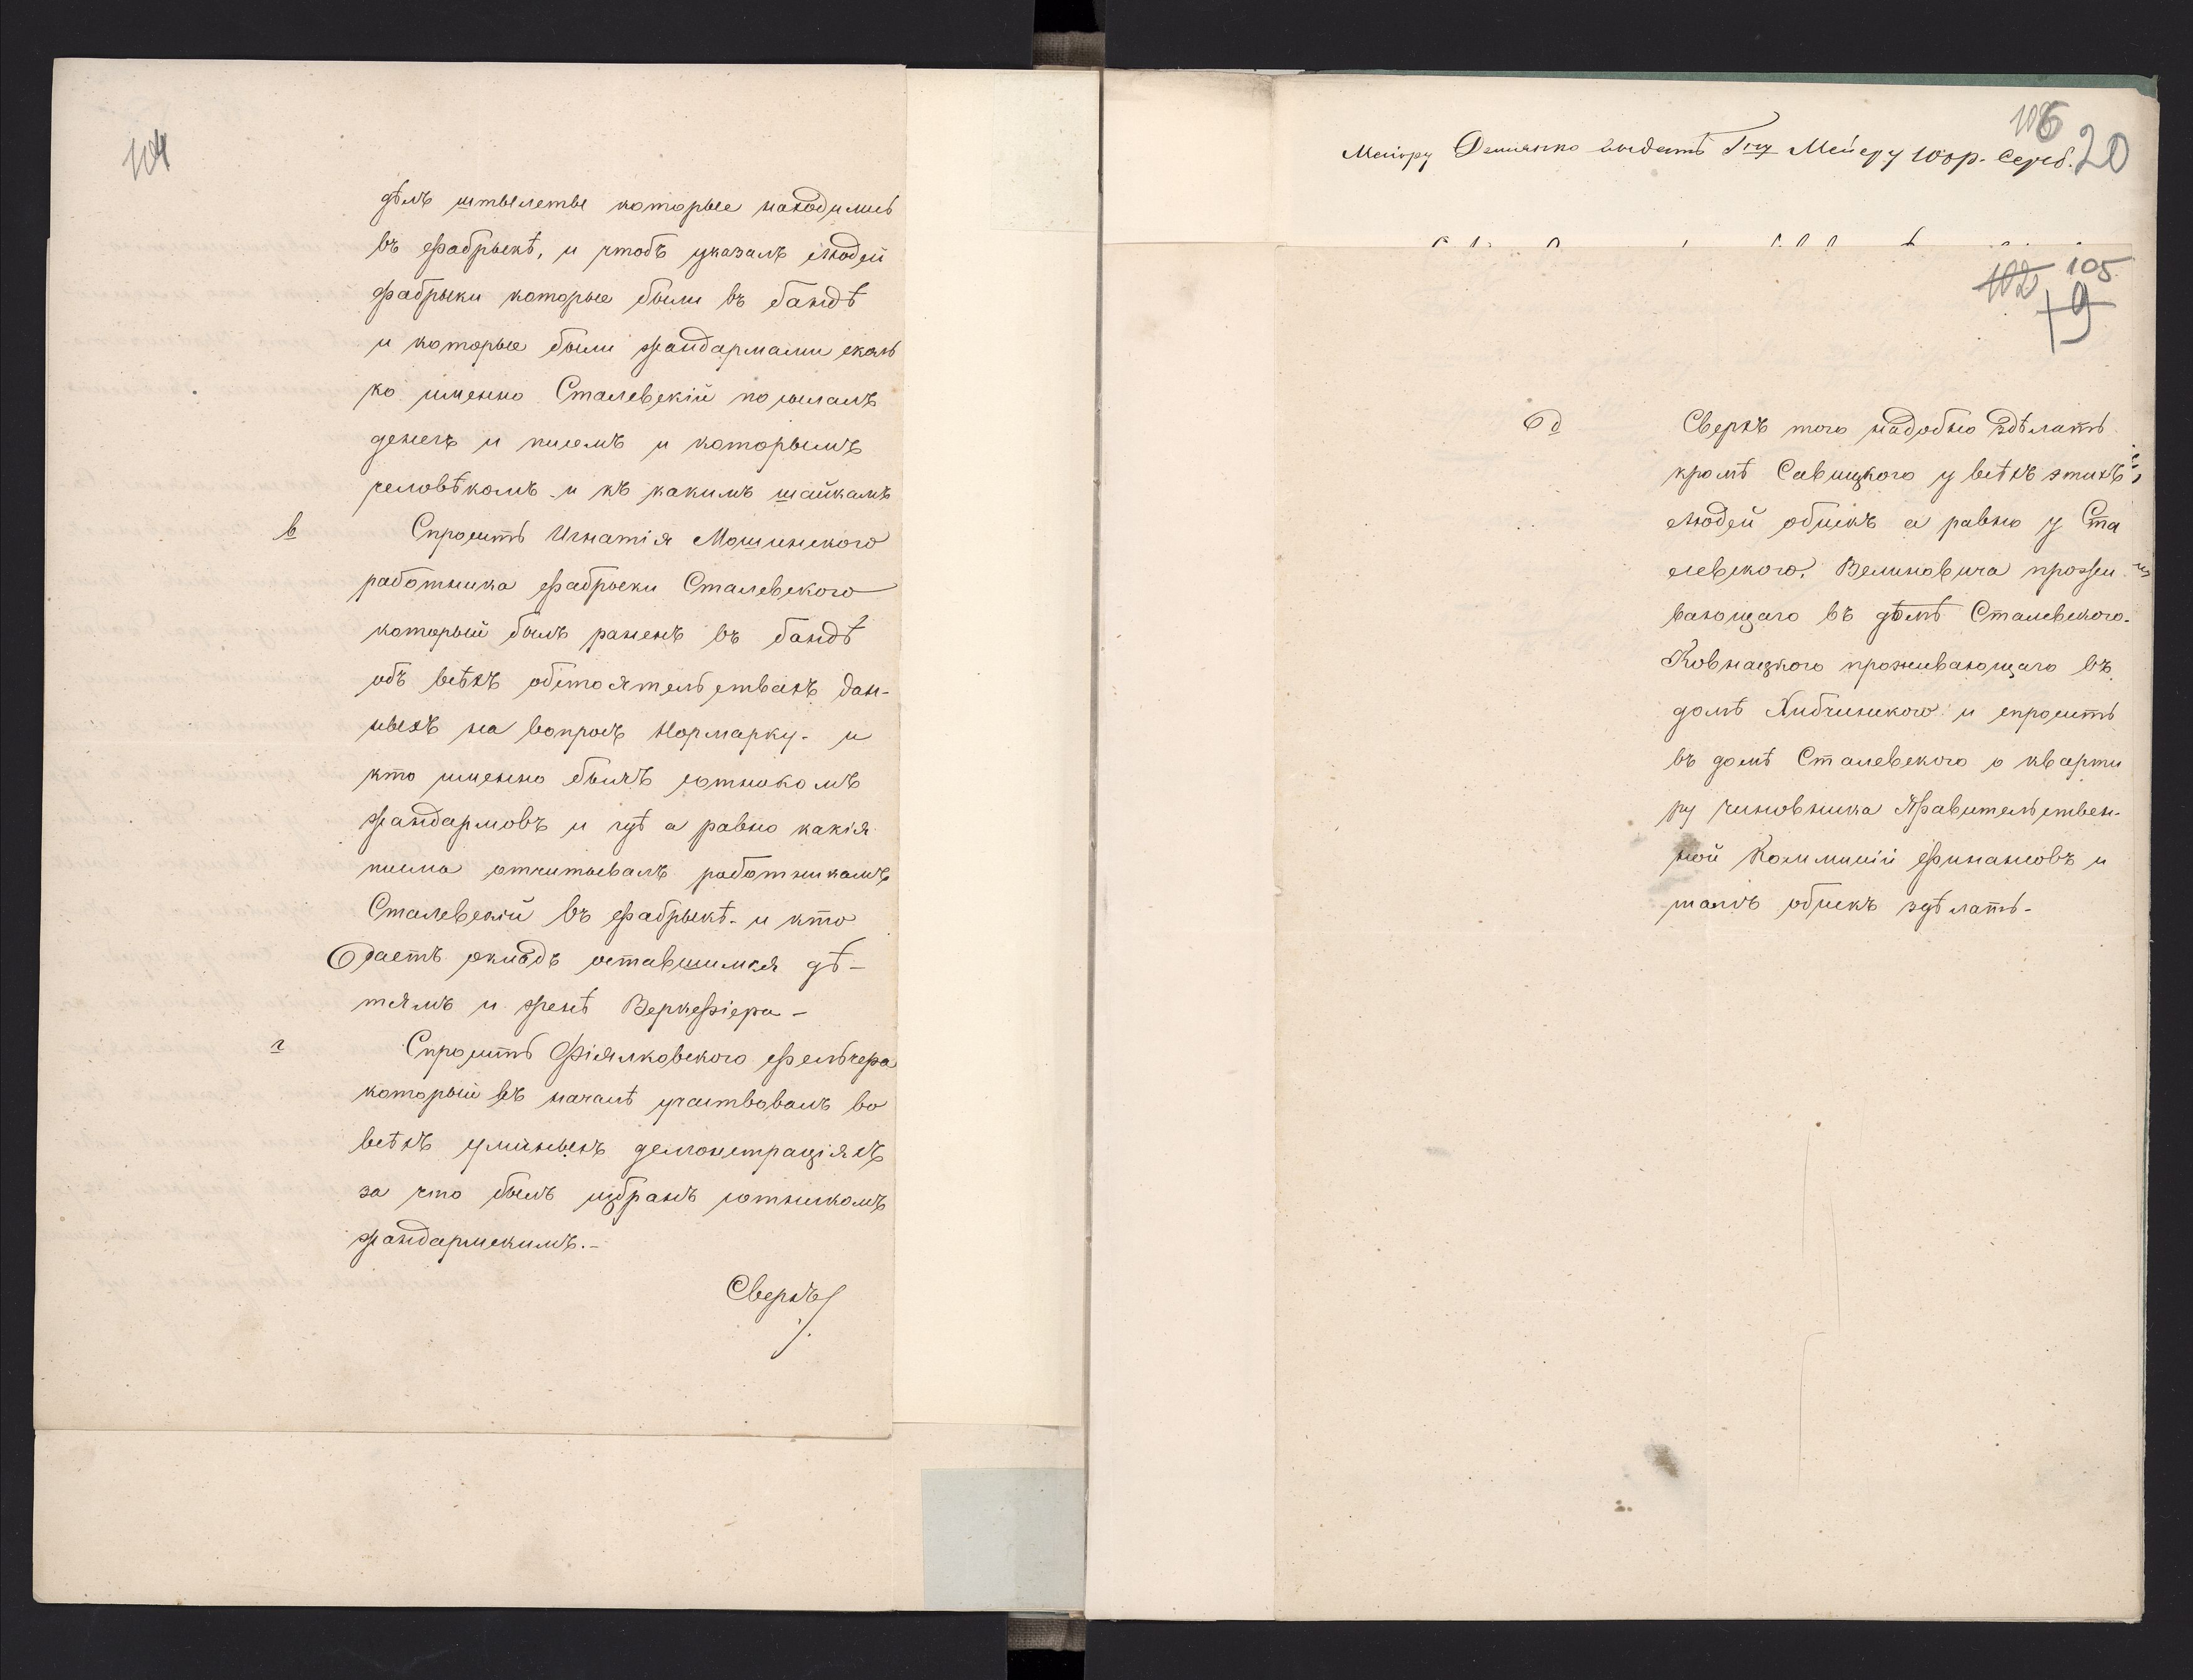 104
дѣлъ штылеты которые находились
въ фабрыкѣ, и чтобъ указалъ людей
фабрыки которые были въ бандѣ
и которые были жандармами сколь
ко именно Сталевскій посылалъ
денегъ и писемъ и которымъ
человѣкомъ и къ какимъ шайкамъ
в Спросить Игнатія Мошинского
работника фабрыки Сталевского
который былъ раненъ въ бандѣ
объ всѣхъ обстоятельствахъ дан-
ныхъ на вопросъ Нормарку. и
кто именно былъ сотникомъ
жандармовъ и гдѣ а равно какія
писма отчитывалъ работникамъ
Сталевскій въ фабрыкѣ. и кто
даетъ окладъ оставшимся дѣ-
тямъ и женѣ Веркефіера –
г Спросить Фіялковского фельчера
который въ началѣ участвовалъ во
всѣхъ улийныхъ демонстраціяхъ
за что былъ избранъ сотникомъ
жандармскимъ.–
Сверхъ
106
20
Маіору выдать Гну Мейеру 10 р. Сереб.
102 105
19
д Сверхъ того надобно здѣлать
кромѣ Савицкого у всѣхъ этихъ
людей обискъ а равно у Ста
левского. Велиновича прожи
вающаго въ домѣ Сталевского.
Ковнацкого проживающаго въ
домѣ Хибчинского и спросить
въ домѣ Сталевского о кварти
ру чиновника Правительствен-
ной Коммисіи Финансовъ и
тамъ обискъ здѣлать.